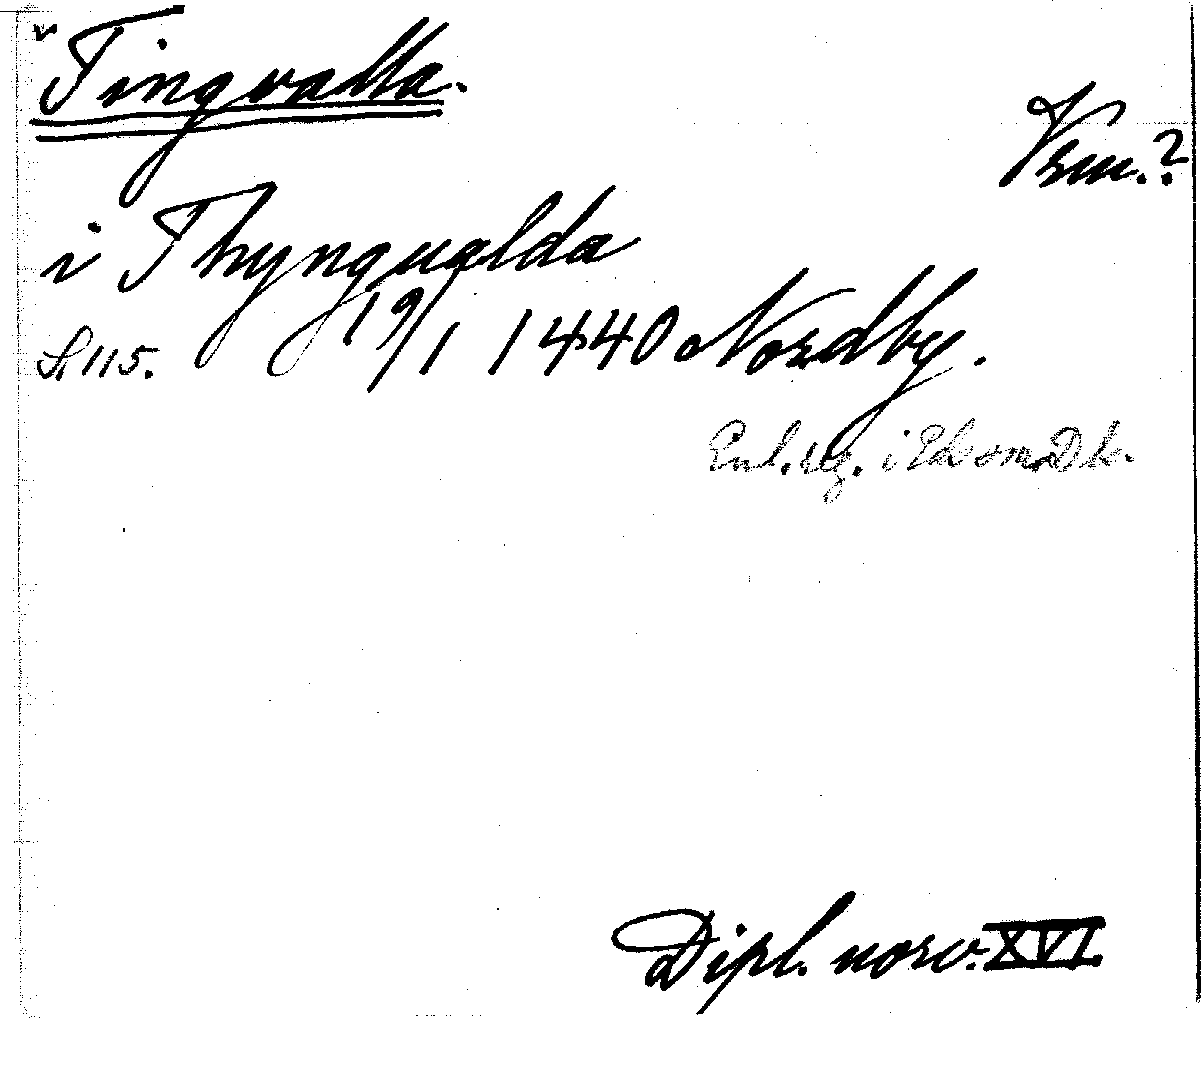 v Tingvalla.
Vrm.?
i Thyngualda
S. 115. 19/1 1440 Nordby.
Enl. reg. i Edsom Dls.
Dipl. norv. XVI.